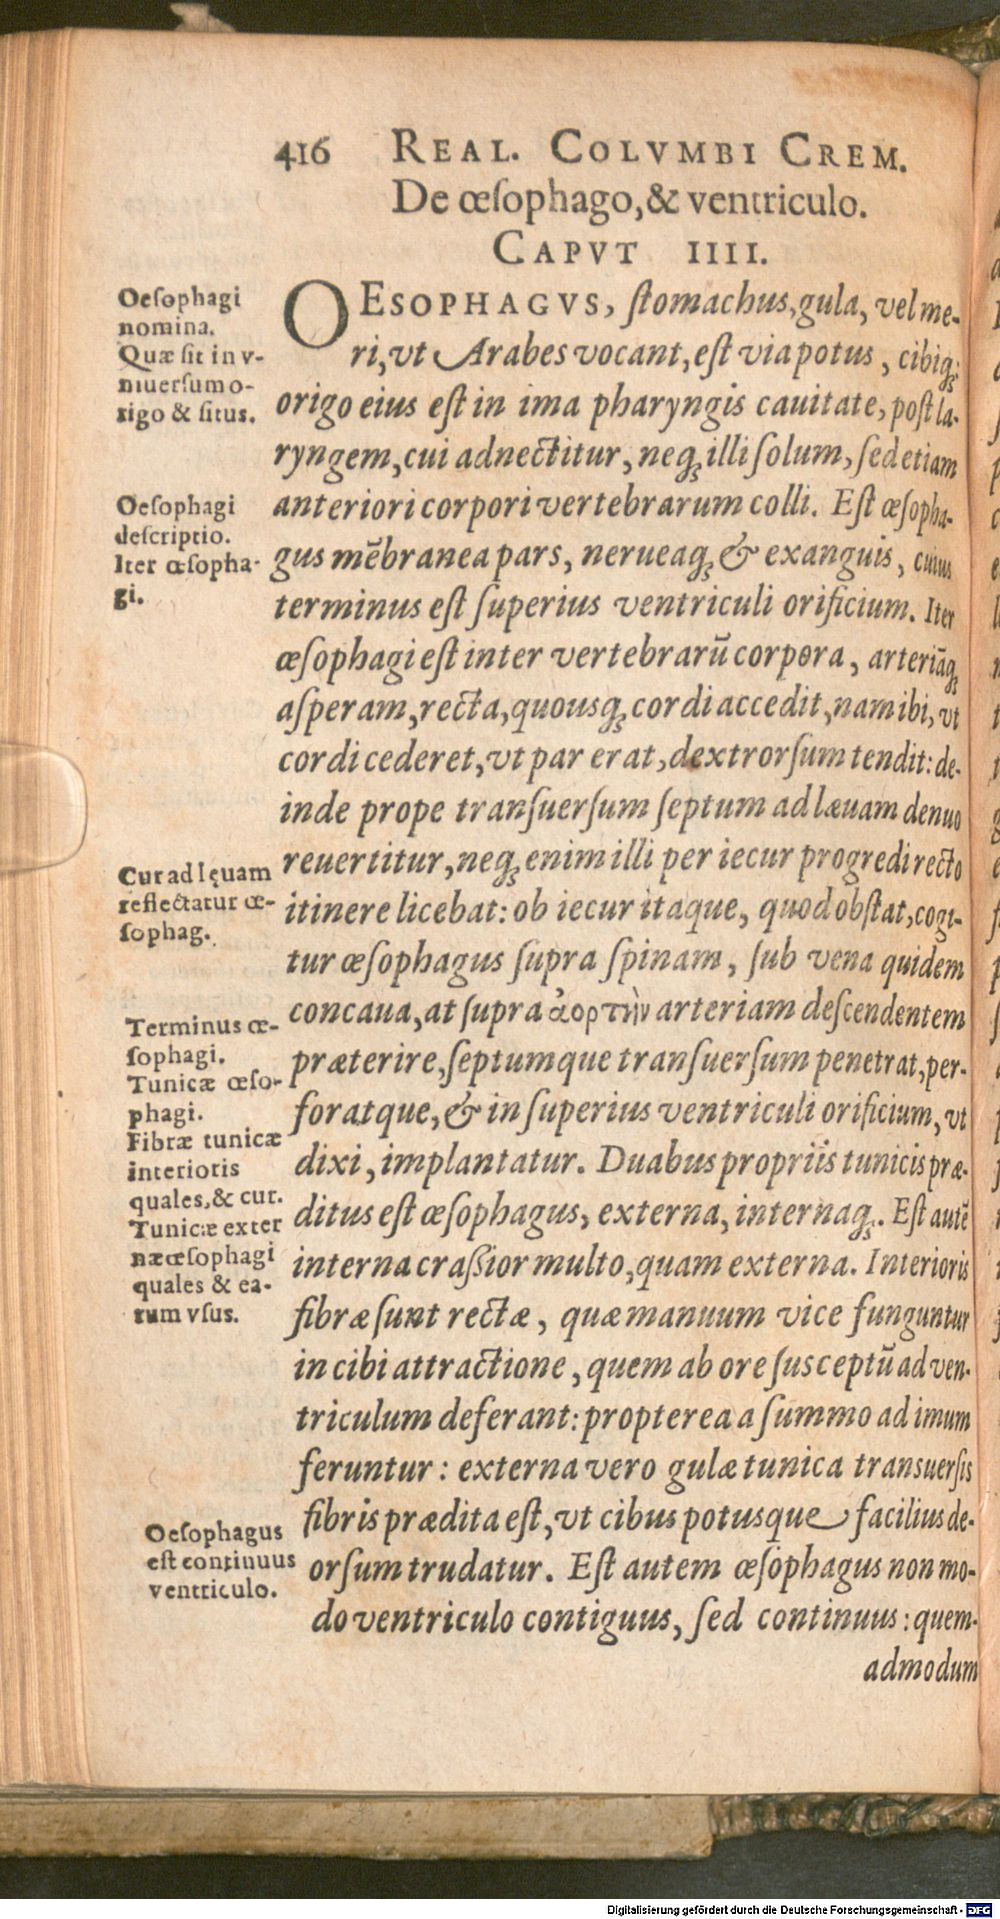 416 REAL. COLVMBI CREM.
De œſophago, & ventriculo.
CAPVT IIII.
Oeſophagi
nomina.
Quæ ſit in v-
niuerſum o-
rigo & ſitus.
Oeſophagi
deſcriptio.
Iter œſopha-
gi.
Cur ad lęuam
reflectatur œ-
ſophag.
Terminus œ-
ſophagi.
Tunicæ œſo-
phagi.
Fibræ tunicæ
interioris
quales, & cur.
Tunicæ exter
næ œſophagi
quales & ea-
rum vſus.
Oeſophagus
est continuus
ventriculo.
OESOPHAGVS, ſtomachus, gula, vel me-
ri, vt Arabes vocant, eſt via potus, cibiq́;
origo eius eſt in ima pharyngis cauitate, poſt la-
ryngem, cui adnectitur, neq; illi ſolum, ſed etiam
anteriori corpori vertebrarum colli. Eſt œſopha-
gus mẽbranea pars, nerueaq; & exanguis, cuius
terminus eſt ſuperius ventriculi orificium. Iter
œſophagi eſt inter vertebrarũ corpora, arteriãq;
aſperam, recta, quousq; cordi accedit, nam ibi, vt
cordi cederet, vt par erat, dextrorſum tendit: de-
inde prope tranſuerſum ſeptum ad læuam denuo
reuertitur, neq; enim illi per iecur progredi recto
itinere licebat: ob iecur itaque, quod obſtat, cogi-
tur œſophagus ſupra ſpinam, ſub vena quidem
concaua, at ſupra ἀορτὴν arteriam deſcendentem
præterire, ſeptumque tranſuerſum penetrat, per-
foratque, & in ſuperius ventriculi orificium, vt
dixi, implantatur. Duabus propriis tunicis præ-
ditus eſt œſophagus, externa, internaq;. Eſt autẽ
interna craßior multo, quam externa. Interioris
fibræ ſunt rectæ, quæ manuum vice funguntur
in cibi attractione, quem ab ore ſusceptũ ad ven-
triculum deferant: propterea a ſummo ad imum
feruntur: externa vero gulæ tunica transuerſis
fibris prædita eſt, vt cibus potusque facilius de-
orſum trudatur. Eſt autem œſophagus non mo-
do ventriculo contiguus, ſed continuus: quem-
admodum
Digitalisierung gefördert durch die Deutsche Forschungsgemeinschaft - DFG